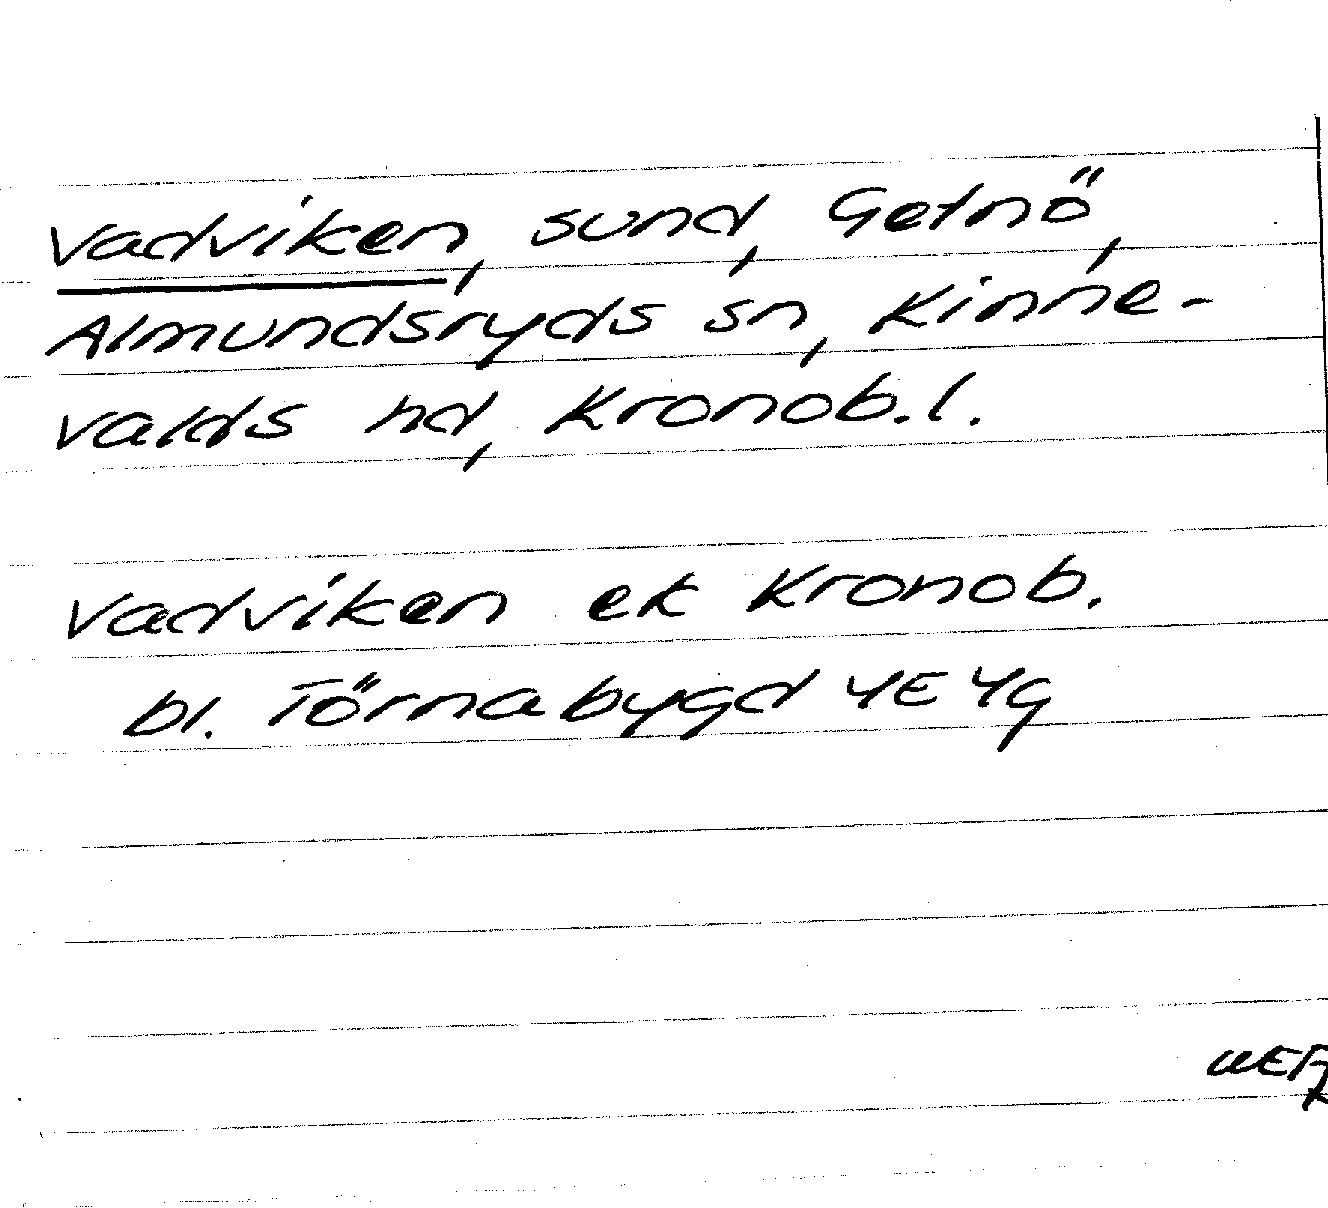 Vadviken, sund, Getnö,
Almundsryds sn, Kinne-
valds hd, Kronob. l.
Vadviken ek Kronob.
bl. Törnabygd 4E4g